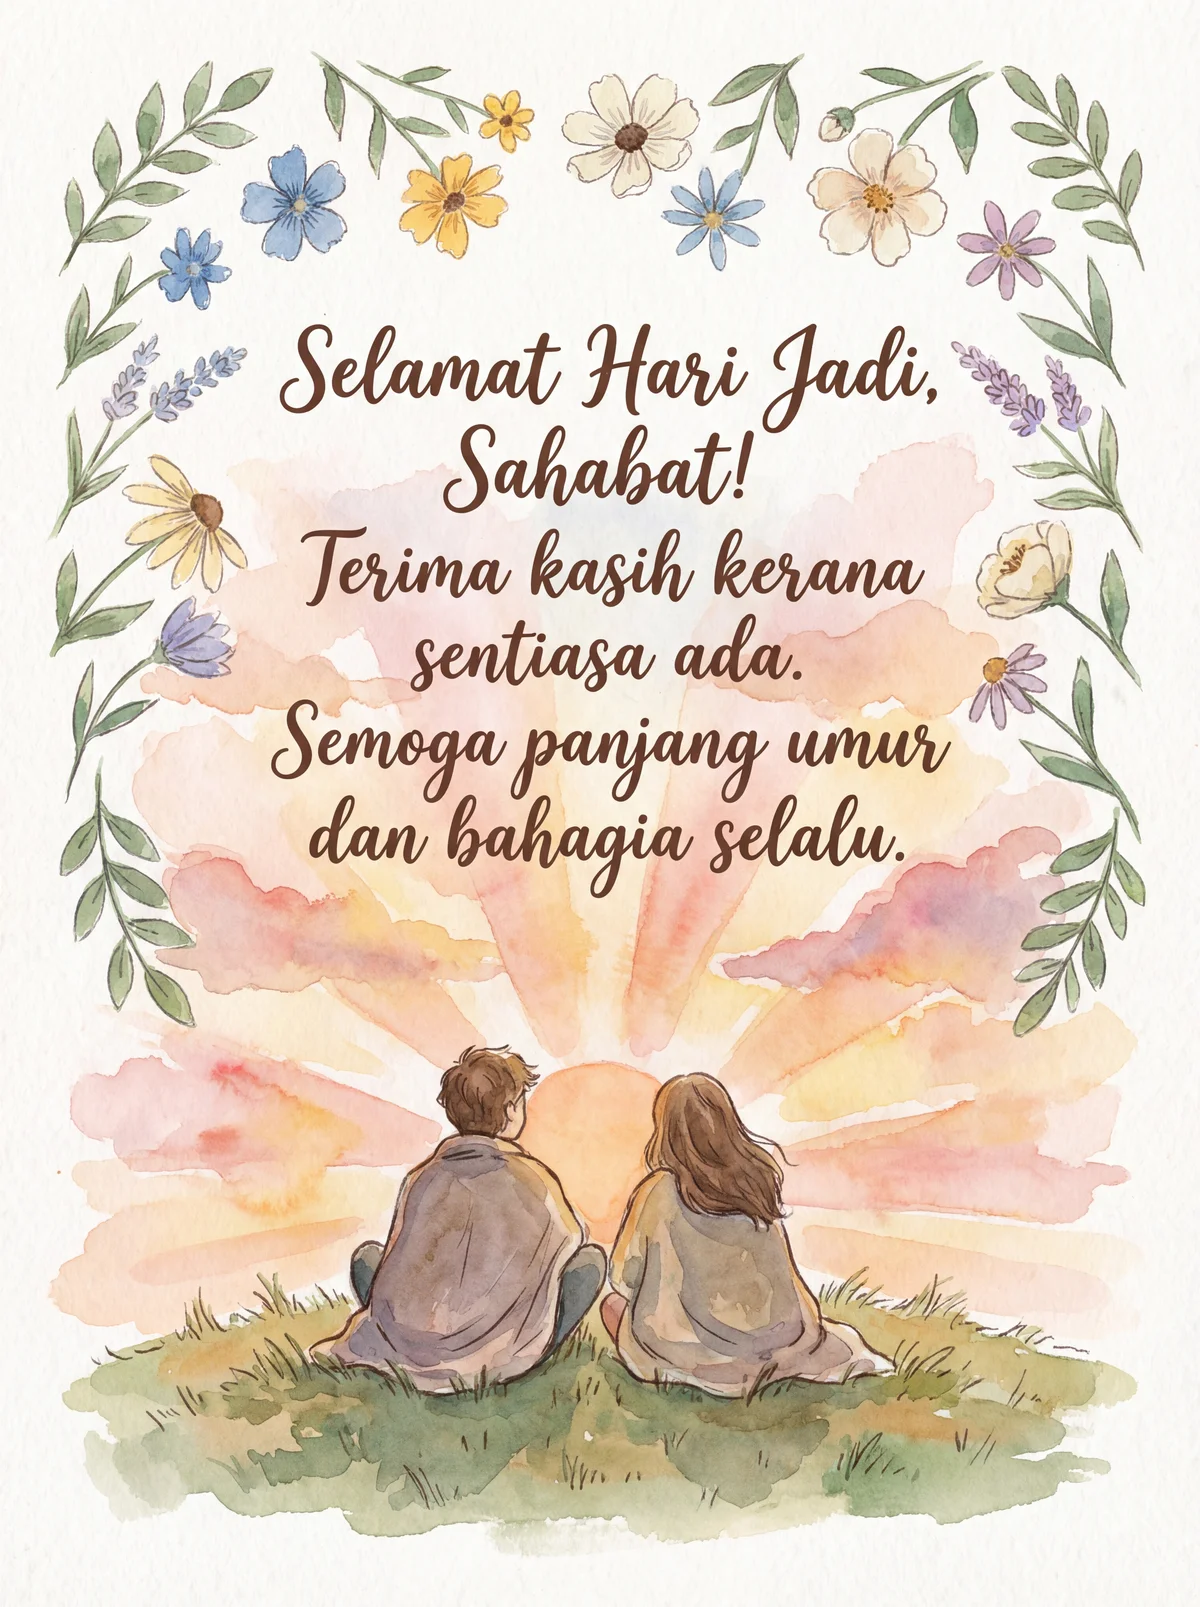 Selamat Hari Jadi,
Sahabat!
Terima kasih kerana
sentiasa ada.
Semoga panjang umur
dan bahagia selalu.